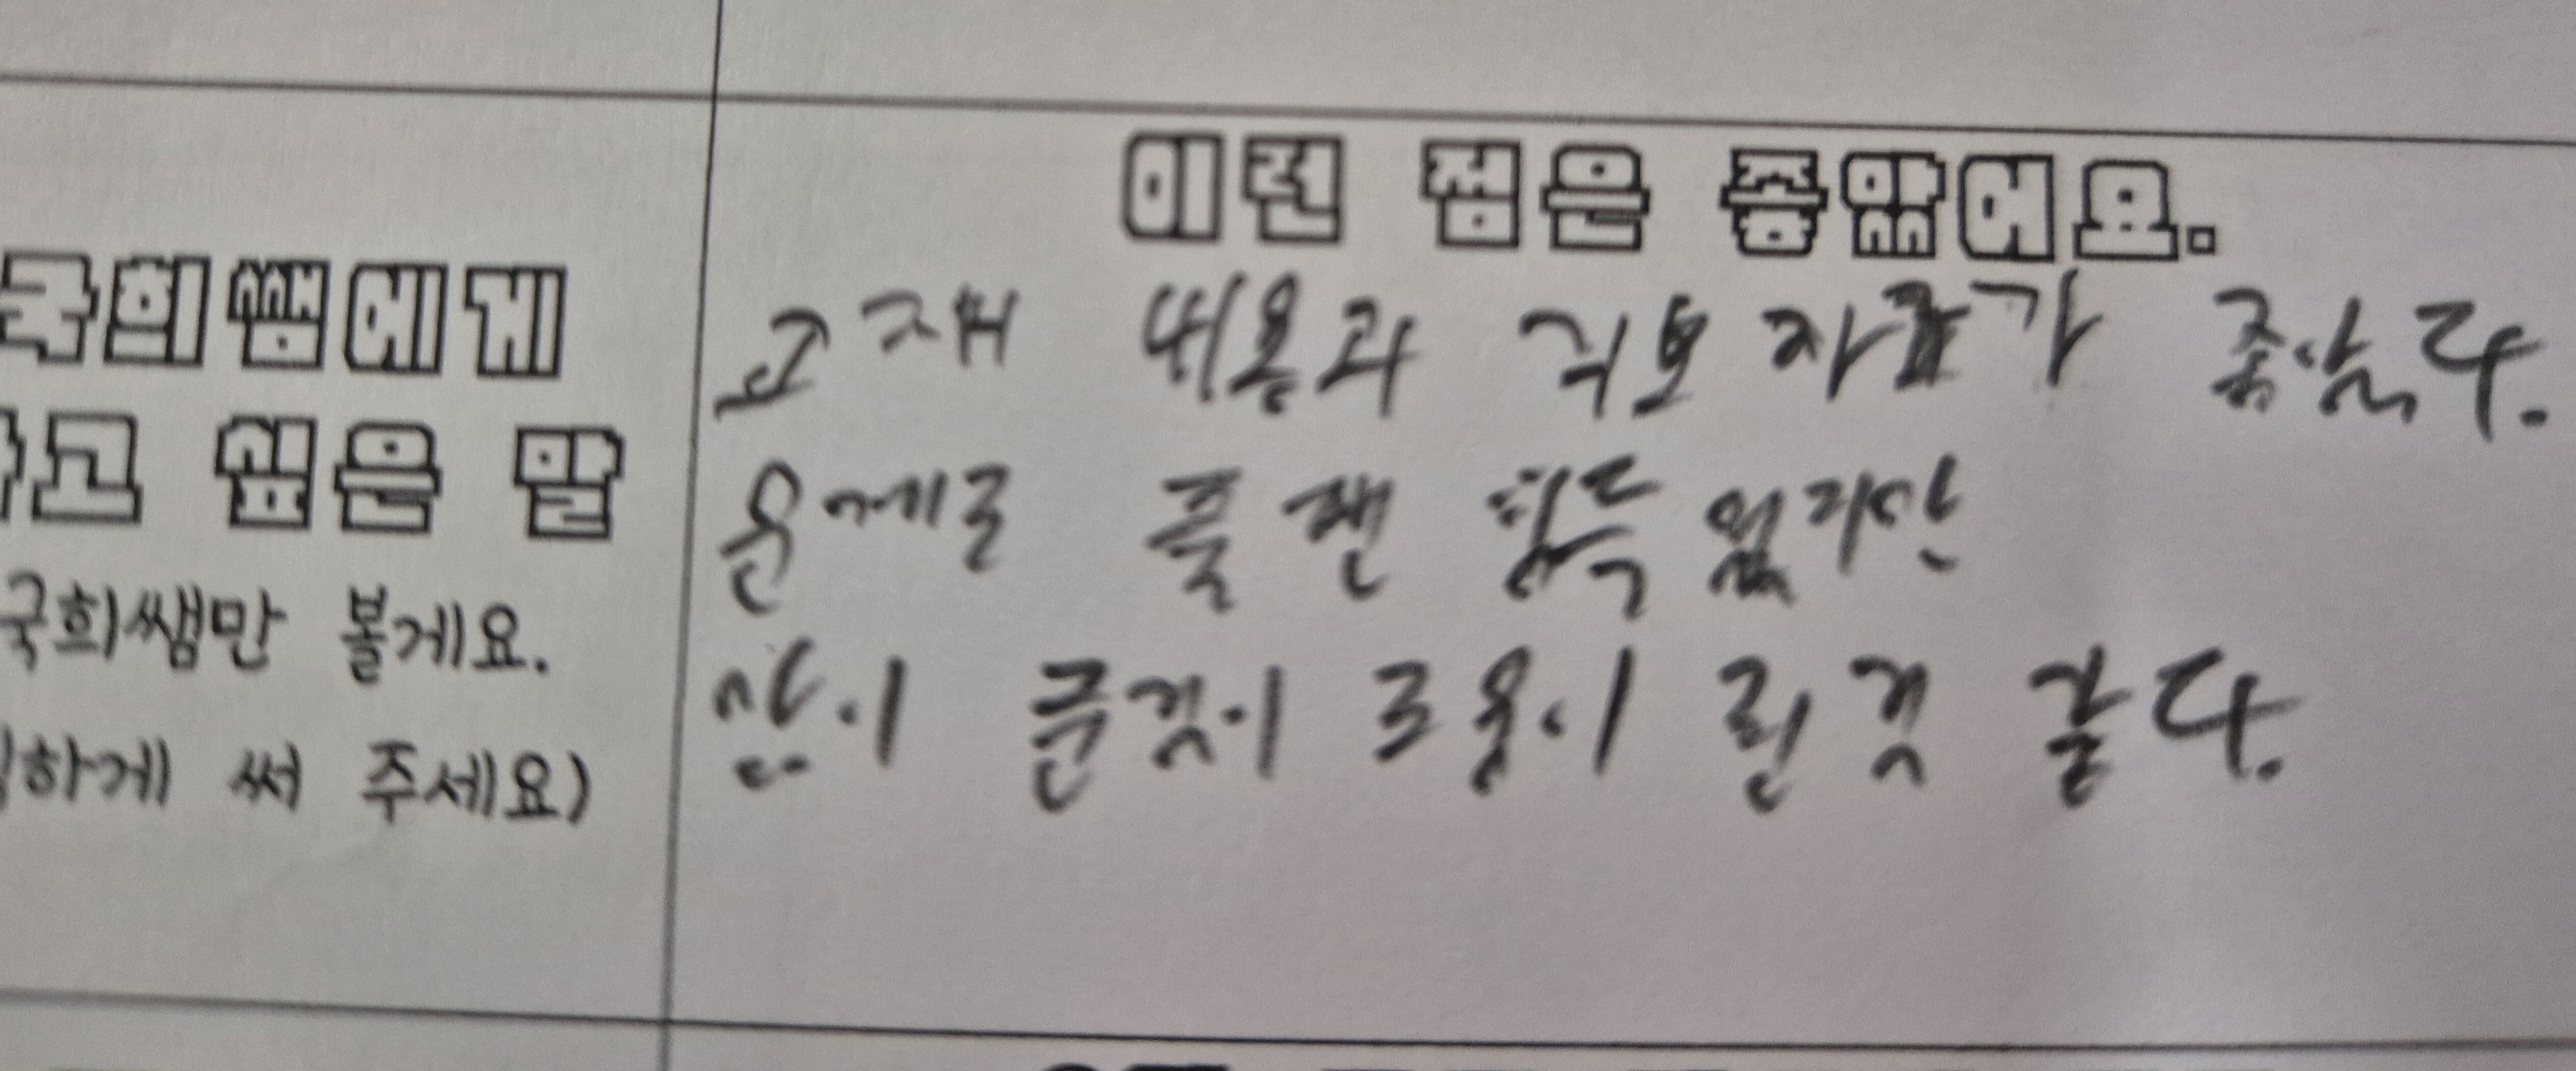 이런 점은 좋았어요.
국희쌤에게
고 싶은 말
국희쌤만 볼게요.
하게 써 주세요)
교재 내용과 귀보 자료가 좋았다.
문제로 풀 땐 힘들었지만
많이 푼것이 도움이 된 것 같다.